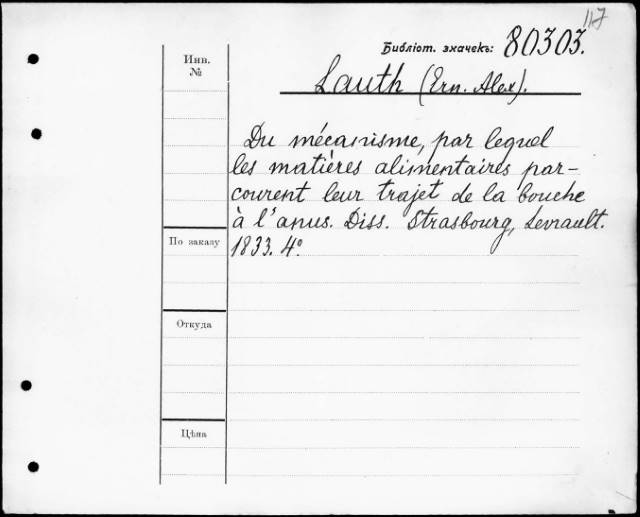 117
Библіот. значекъ: 80303.
Инв.
№
Lauth (Ern. Alex).
Du mécanisme, par lequel
les matières alimentaires par-
courent leur trajet de la bouche
à l'anus. Diss. Strasbourg, Levrault.
1833. 4º
По заказу
Откуда
Цѣна